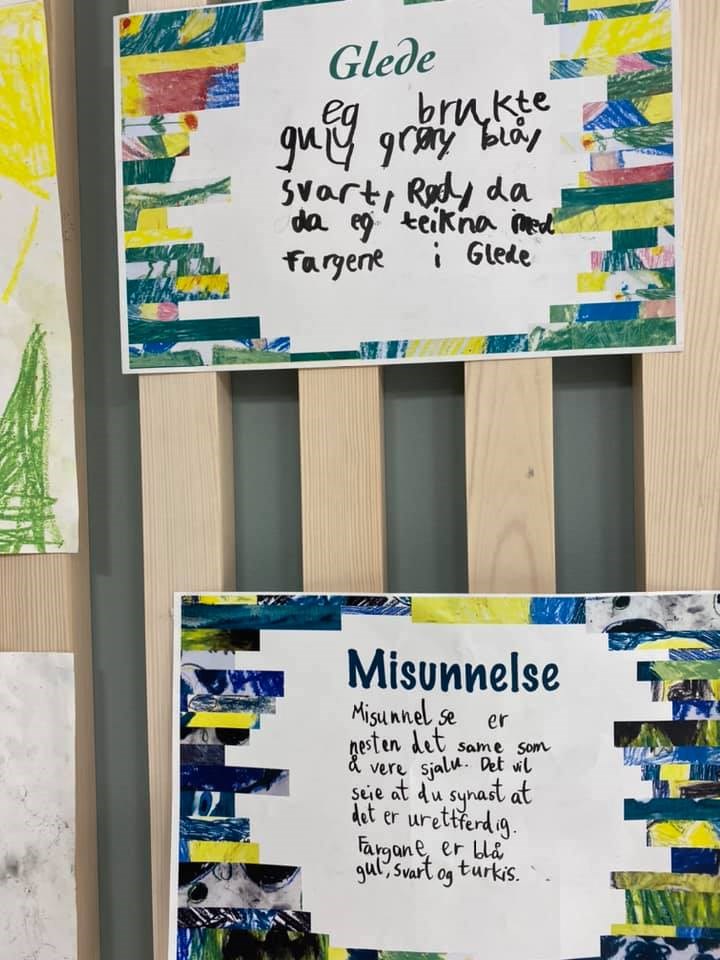 Glede
eg brukte
gul, grøn, blå,
svart, Rød, da
da eg teikna med
Fargene i Glede
Misunnelse
Misunnelse er
nesten det same som
å vere sjalu. Det vil
seie at du synast at
det er urettferdig.
Fargane er blå
gul, svart og turkis.